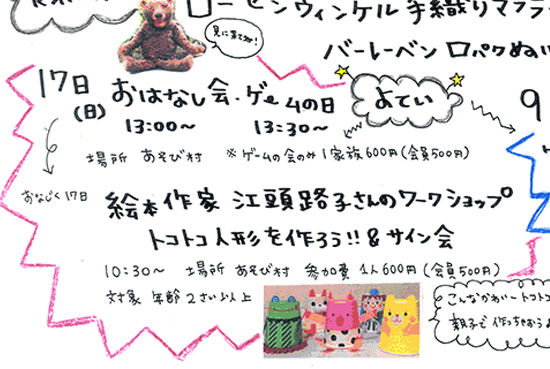 ローゼンウィンケル手織りマフラ
見に来てネ!
バーレーベン 口パクぬい
17日(日) おはなし会・ゲームの日
13:00〜 13:30〜
よてい
9
場所 あそび村 ※ゲームの会のみ1家族600円(会員500円)
おなじく17日
絵本作家 江頭路子さんのワークショップ
トコトコ人形を作ろう!!&サイン会
10:30〜 場所 あそび村 参加費 1人600円(会員500円)
対象 年齢 2さい以上
こんなかわいートコトコ
親子で作っちゃおう